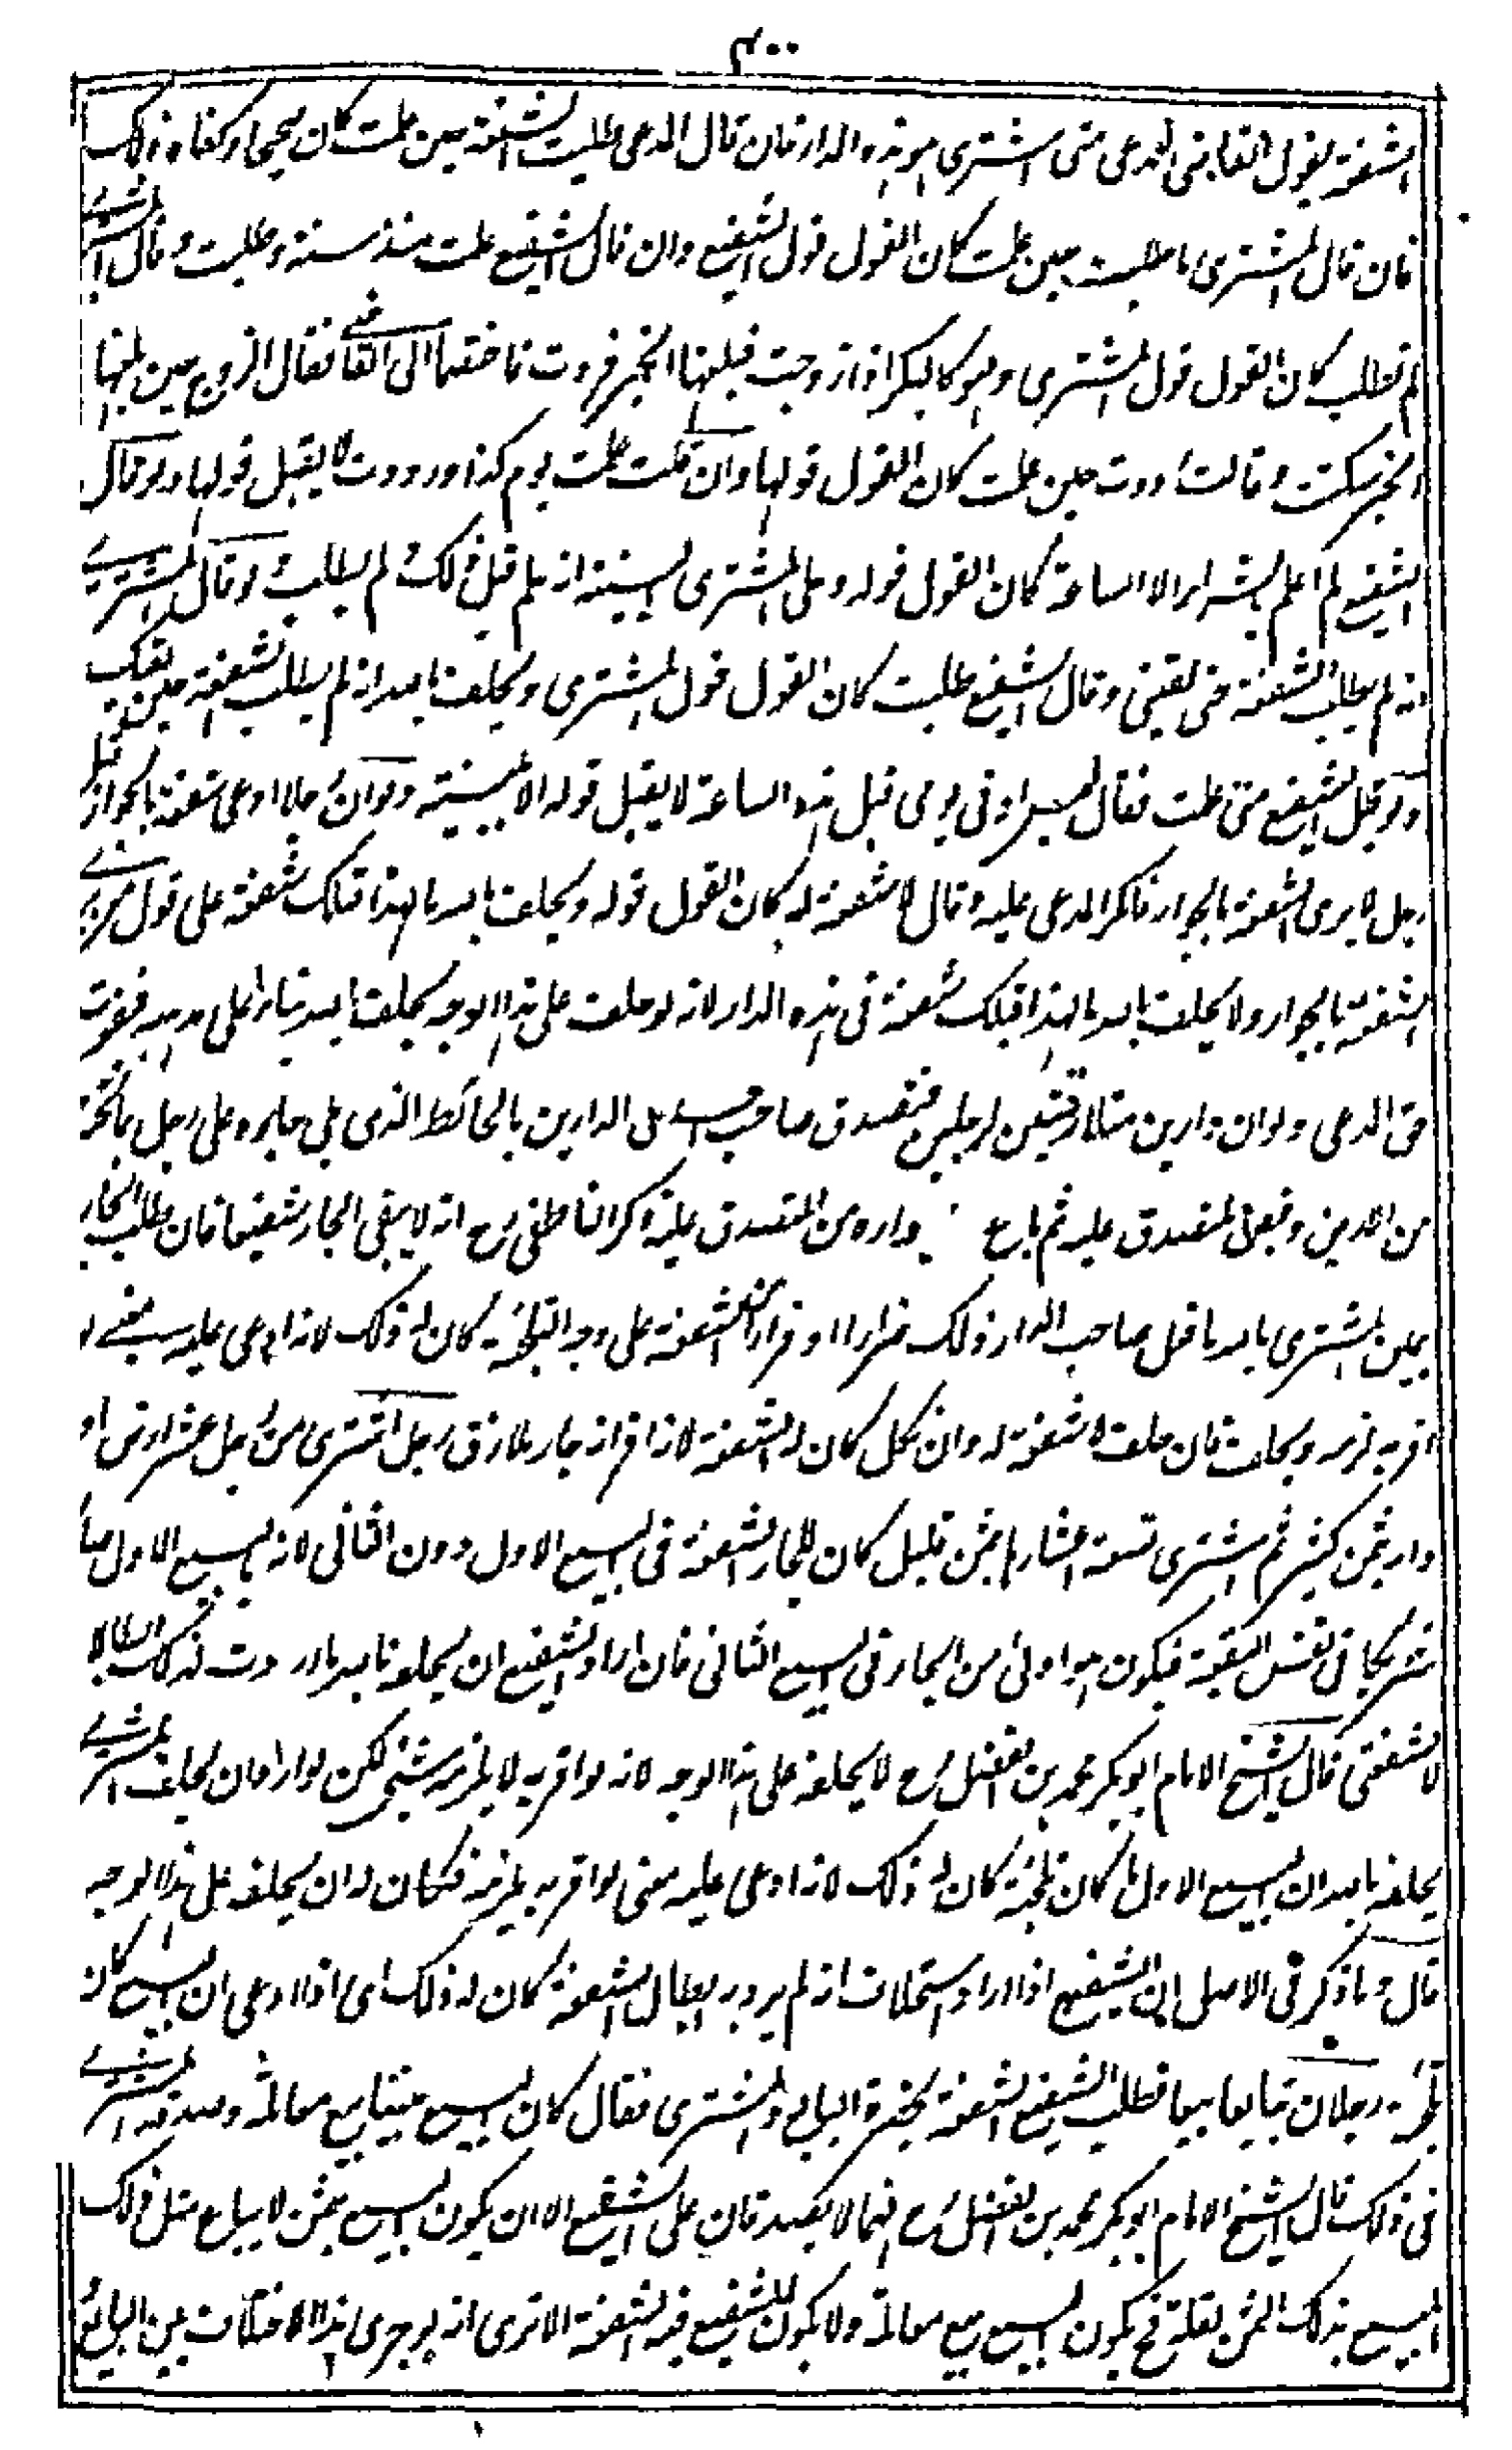 ٣٠٠
الشفعة يقول القاضى للمدعى متى اشترى هو هذه الدار فان قال المدعى طلبت الشفعة حين علمت كان صحيحا وكفاه ذلك
فان قال المشترى ما طلبت حين علمت كان القول قول الشفيع وان قال الشفيع علمت منذ سنة وطلبت وقال المشترى
لم تطلب كان القول قول المشترى وهو كالبكر اذا زوجت فبلغها الخبر فردت فاختصما الى القاضى فقال الزوج حين بلغها
الخبر سكتت وقالت رددت حين علمت كان القول قولها وان قالت علمت يوم كذا ورددت لا يقبل قولها ولو قال
الشفيع لم اعلم بالشراء الا الساعة كان القول قوله وعلى المشترى البينة انه علم قبل ذلك ولم يطلب ولو قال المشترى
انه لم يطلب الشفعة حتى لقينى وقال الشفيع طلبت كان القول قول المشترى ويحلف بالله انه لم يطلب الشفعة حين لقيك
ولو قيل للشفيع متى علمت فقال امس او فى يومى قبل هذه الساعة لا يقبل قوله الا ببينة ولو ان رجلا ادعى شفعة بالجوار قبل
رجل لا يرى الشفعة بالجوار فانكر المدعى عليه وقال لا شفعة له كان القول قوله ويحلف بالله ما لهذا قبلك شفعة على قول من يرى
الشفعة بالجوار ولا يحلف بالله ما لهذا قبلك شفعة فى هذه الدار لانه لو حلف على هذا الوجه يحلف بالله بناء على مذهبه فيفوت
حق المدعى ولو ان دارين متلازقتين لرجلين فتصدق صاحب احدى الدارين بالحائط الذى يلى جاره على رجل بما تحته
من الارض وقبض المتصدق عليه ثم باع داره من المتصدق عليه ذكر الناطفى رح انه لا يبقى الجار شفيعا فان طلب الجار
يمين المشترى بالله ما فعل صاحب الدار ذلك ضرارا او فرارا من الشفعة على وجه التلجئة كان له ذلك لانه ادعى عليه معنى لو
اقر به لزمه ويحلف فان حلف لا شفعة له وان نكل كان له الشفعة لانه اقر انه جار ملازق رجل اشترى من رجل عشر ارض او
دار بثمن كثير ثم اشترى تسعة اعشارها بثمن قليل كان للجار الشفعة فى البيع الاول دون الثانى لانه بالبيع الاول صار
شريكا فى نفس البقعة فيكون هو اولى من الجار فى البيع الثانى فان اراد الشفيع ان يحلفه بالله ما اردت بذلك ابطالا
لشفعتى قال الشيخ الامام ابو بكر محمد بن الفضل رح لا يحلفه على هذا الوجه لانه لو اقر به لا يلزمه شىء لكن لو اراد ان يحلف المشترى
يحلفه بالله ان البيع الاول ما كان تلجئة كان له ذلك لانه ادعى عليه معنى لو اقر به يلزمه فكان له ان يحلفه على هذا الوجه
قال وما ذكر فى الاصل ان الشفيع اذا اراد استحلافه انه لم يرد به ابطال الشفعة كان له ذلك اى اذا ادعى ان البيع كان
تلجئة رجلان تبايعا بيعا فطلب الشفيع الشفعة بحضرة البائع والمشترى فقال كان البيع بيننا بيع معاملة وصدقه المشترى
فى ذلك قال الشيخ الامام ابو بكر محمد بن الفضل رح انهما لا يصدقان على الشفيع الا ان يكون البيع بثمن لا يباع مثل ذلك
المبيع بذلك الثمن لقلته فح يكون البيع بيع معاملة ولا يكون للشفيع فيه الشفعة الا ترى انه لو جرى هذا الاختلاف بين البائع